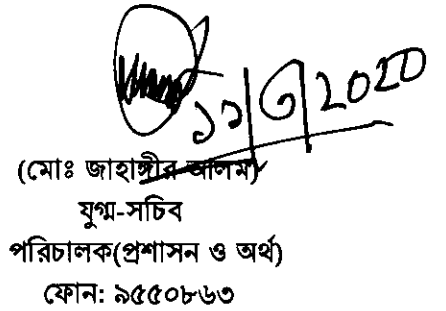 ১১/৩/2020
(মোঃ জাহাঙ্গীর আলম)
যুগ্ম-সচিব
পরিচালক(প্রশাসন ও অর্থ)
ফোন: ৯৫৫০৮৬৩